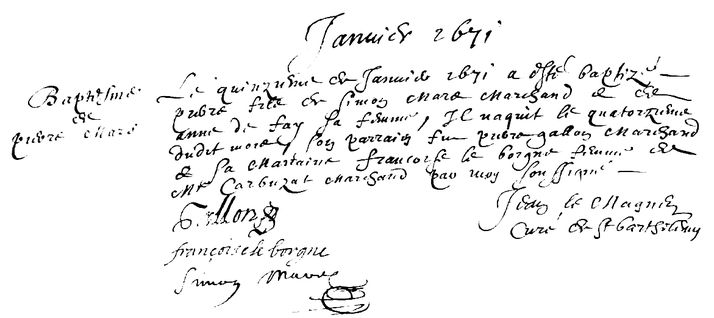 Januier 1671
Baptesme
de
pierre Mare
Le quinzieme de Januier 1671 a esté baptizé
pierre filz de Simon Mare Marchand & de
anne de fay sa femme, Il naquit le quatorzieme
dudit mois, son parrain fut pierre gallon Marchand
& sa Marraine francoise le borgne femme de
Mr Carbuzat Marchand par moy soussigné
Jean le Magnien
Curé de st barthelemy
françoise le borgne
Simon Mare